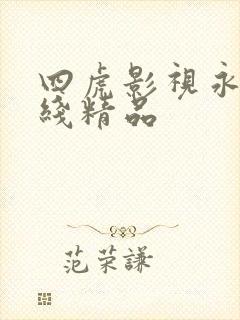 四虎影視永
綫精品
范荣謙